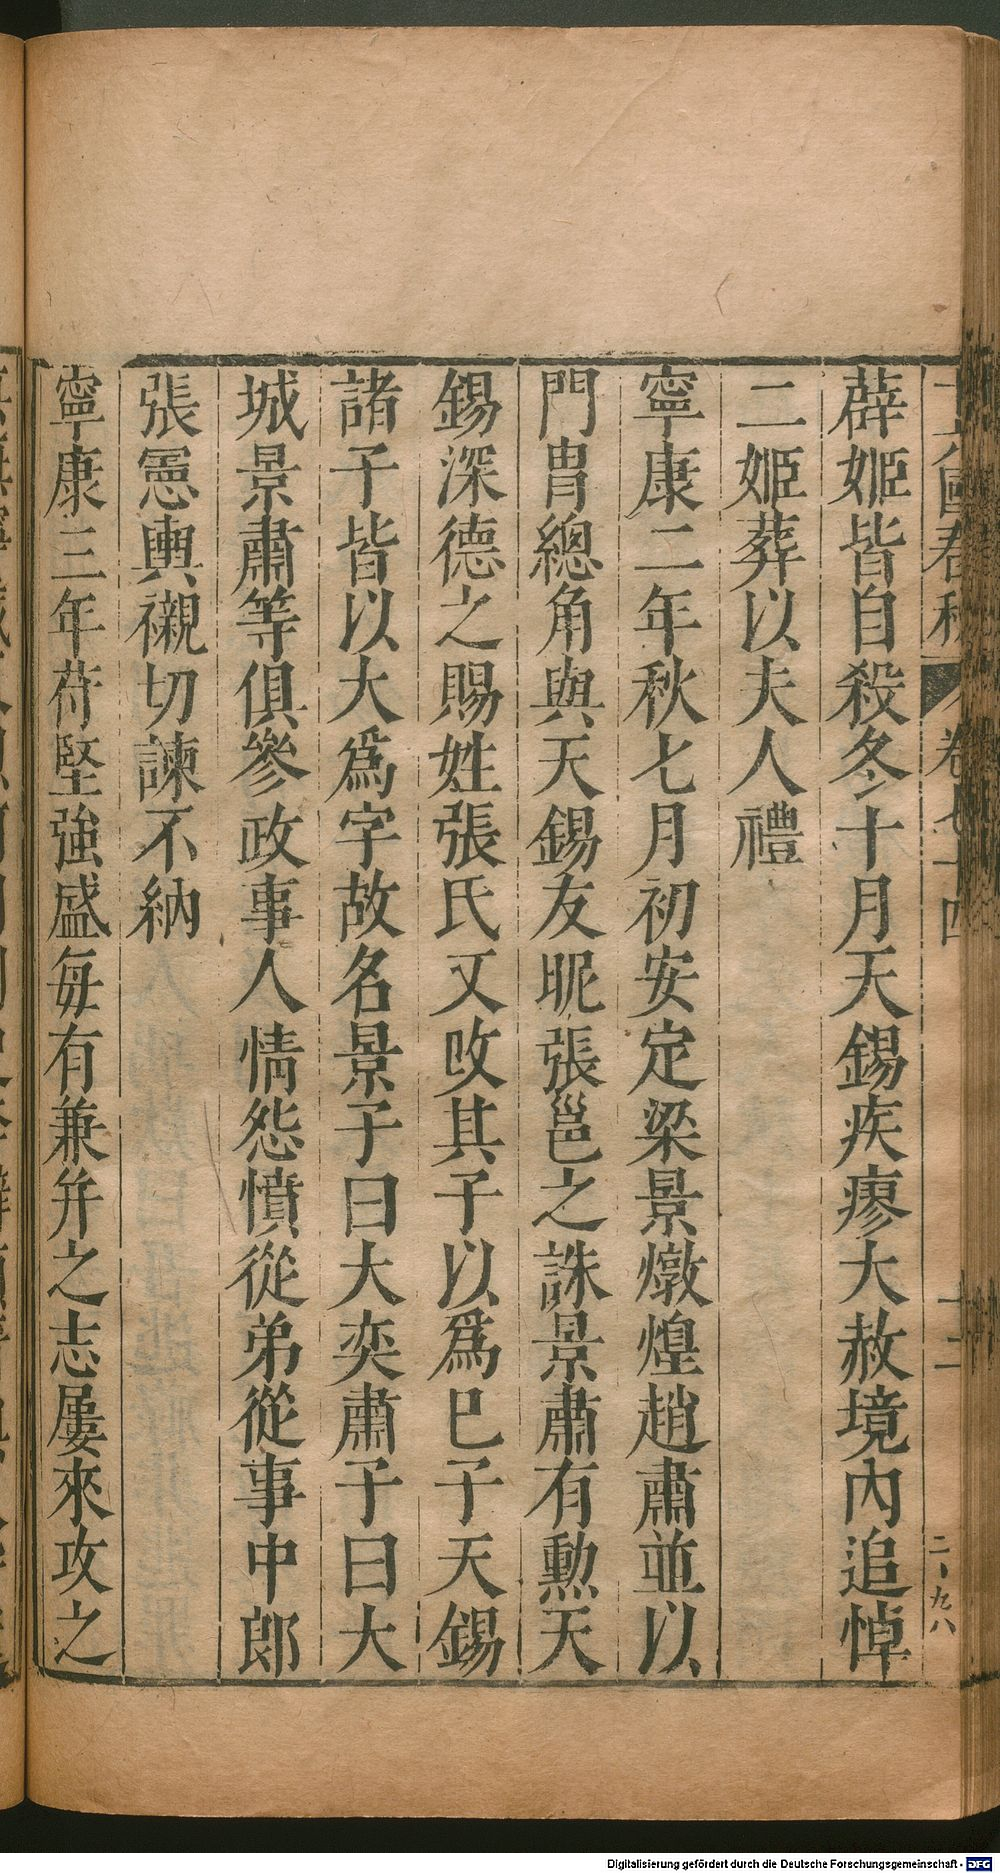 薜姬皆自殺冬十月天錫疾瘳大赦境內追悼
二姬葬以夫人禮
寧康二年秋七月初安定梁景燉煌趙肅並以
門胄總角與天錫友昵張邕之誅景肅有勲天
錫深德之賜姓張氏又攺其子以爲巳子天錫
諸子皆以大爲字故名景子曰大奕肅子曰大
城景肅等俱參政事人情怨憤從弟從事中郎
張憲輿襯切諫不納
寧康三年苻堅強盛每有兼并之志屢來攻之
卷七十四
十二
二、九八
Digitalisierung gefördert durch die Deutsche Forschungsgemeinschaft - DFG